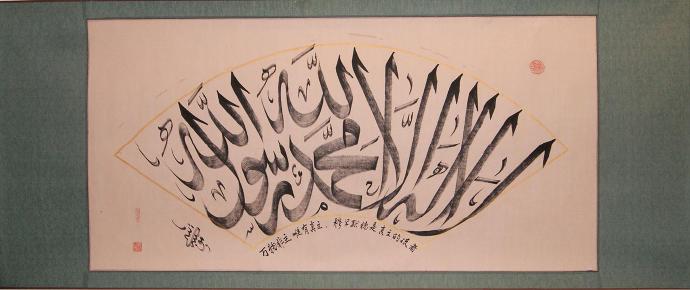 لا إله إلا الله محمد رسول الله
万物非主，唯有真主，穆罕默德是真主的使者